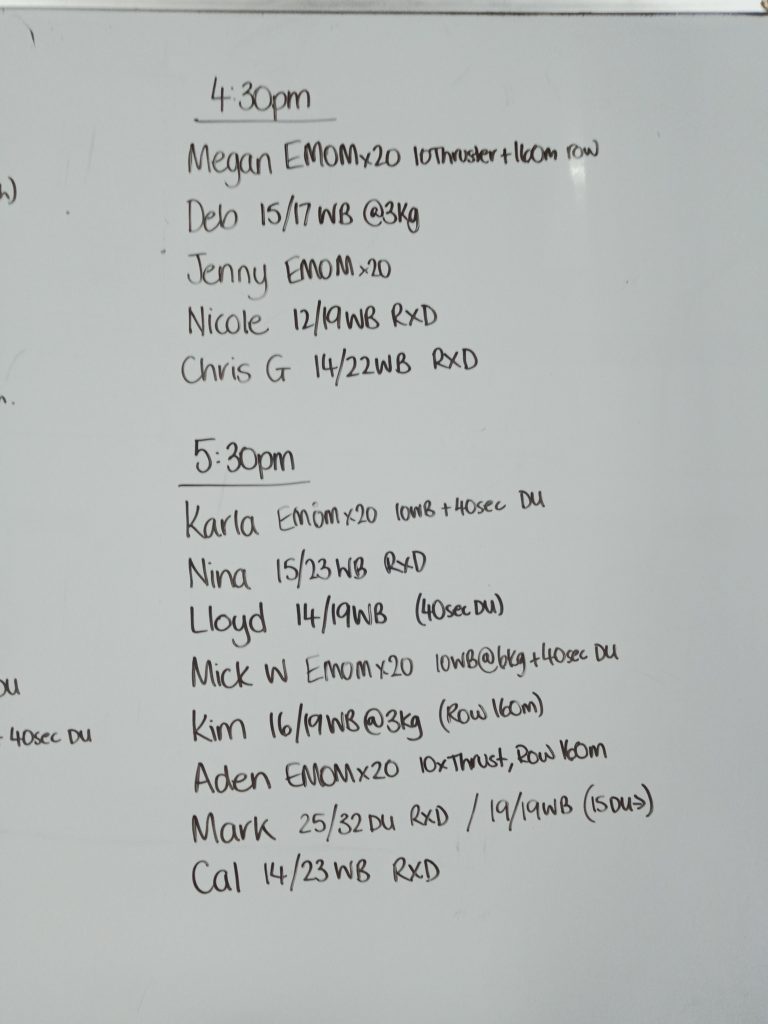 4:30pm
Megan EMOMx20 10Thruster+160m row
Deb 15/17 WB @3kg
Jenny EMOM x20
Nicole 12/19WB RXD
Chris G 14/22WB RXD
5:30pm
Karla EMOM x20 10WB + 40sec DU
Nina 15/23 WB RXD
Lloyd 14/19WB (40sec DU)
Mick W EMOM x20 10WB@6kg + 40sec DU
DU
Kim 16/19WB @3kg (Row 160m)
+ 40sec DU
Aden EMOM x20 10xThrust, Row 160m
Mark 25/32 DU RXD / 19/19WB (15DU->)
Cal 14/23 WB RXD